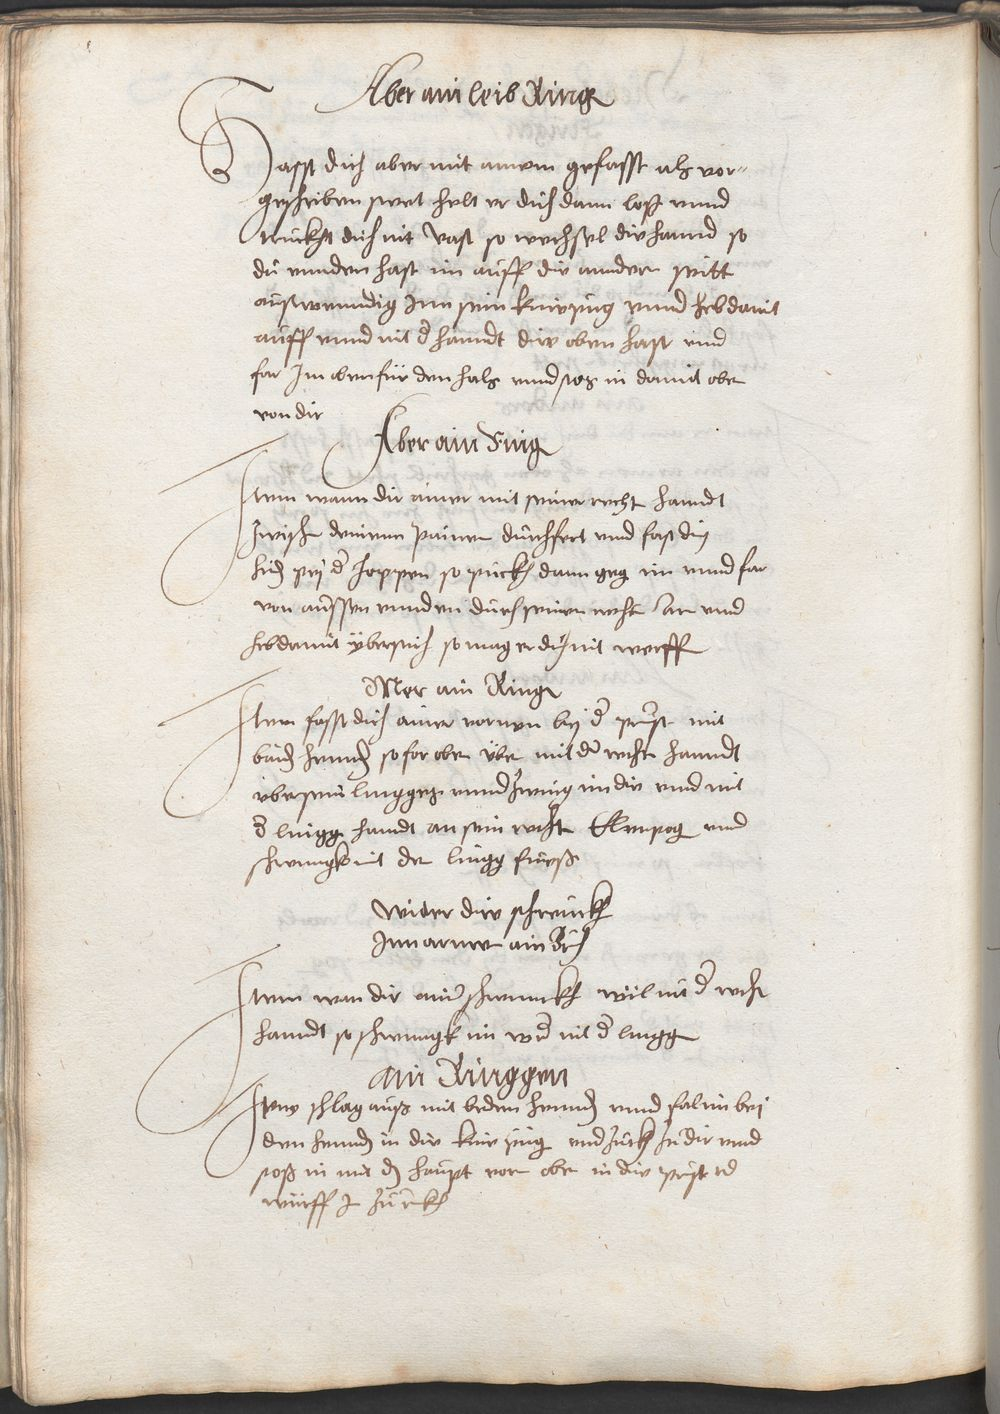 Aber ain leib Ring
Hasst dich aber mit ainem gefasst als vor-
geschriben stet helt er dich dann losz vnnd
truckht dich nit vast so wechsel die hannd so
du vnnden hast im auff die annder seitt
auswenndig Inn sein kniepug vnnd heb damit
auff vnnd mit d hanndt die oben hast vnd
far Im oben für den hals vnnd stos in damit obe
von dir
Aber ain Ring
Item wann dir ainer mit seiner recht hanndt
zwisch deinenn painen durchfert vnd fast dich
hind pej d Joppen so puckh dann geg im vnnd far
von aussen vnnden durch seinen recht Arm vnd
heb damit vbersich so mag er dich nit werff
Mer ain Ring
Item fasst dich ainer vornen bej d prust mit
baid hennd so far obe vbe mit d recht hanndt
vber sein linggen vnnd zwing im die vnd mit
d lingg handt an sein recht Elenpog vnd
schwingk mit der lingg fuesz
wider die schrennckh
Inn arme ain Bruch
Item wan dir ainer schrennckh wil mit d recht
hanndt so schrenngk im wid mit d lingg
ain Ringgen
Item schlag ausz mit beden hennd vnnd fal im bej
den hennd in die knie pug vnd zuckh zu dir vnnd
stosz in mit dem haupt vor obe in die prust vd
würff In zuruckh